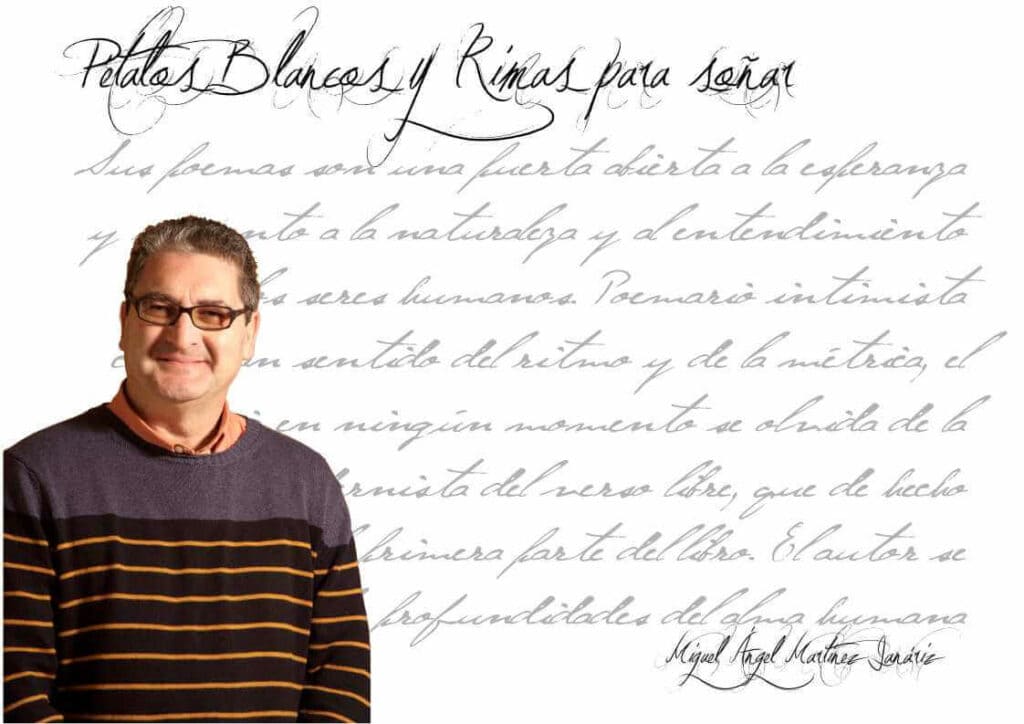 Pétalos Blancos y Rimas para soñar
Sus poemas son una puerta abierta a la esperanza
y nto a la naturaleza y al entendimiento
los seres humanos. Poemario intimista
un sentido del ritmo y de la métrica, el
en ningún momento se olvida de la
rnista del verso libre, que de hecho
primera parte del libro. El autor se
profundidades del alma humana
Miguel Ángel Martínez